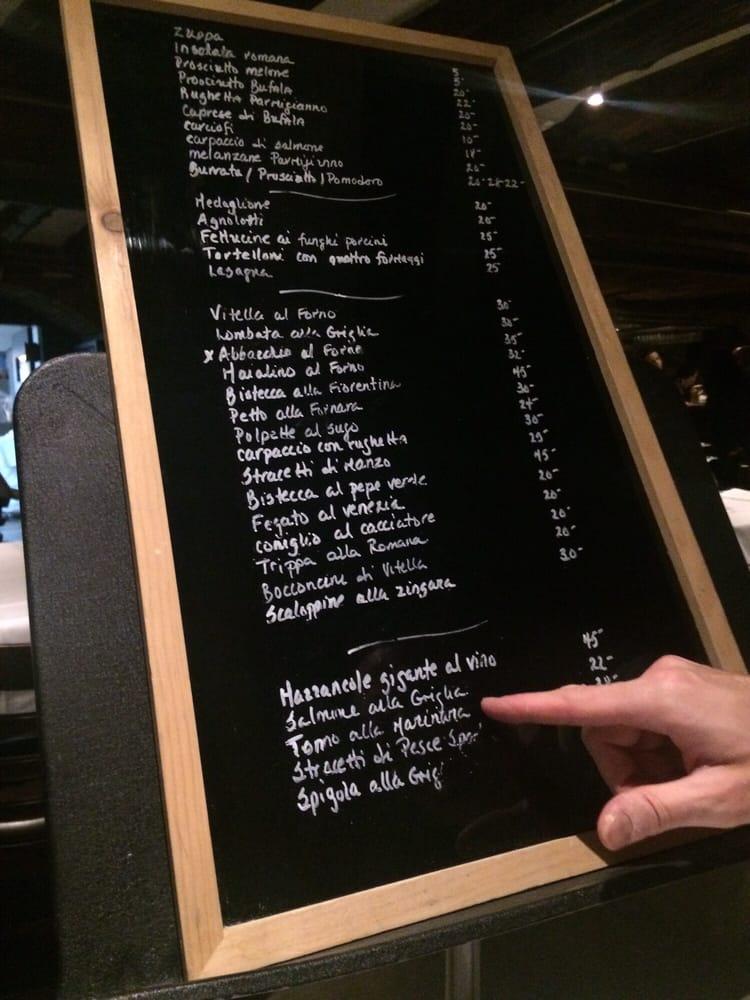 Zuppa
Insalata romana 5-
Prosciutto melone 5-
Prosciutto Bufala 20-
Rughetta Parmigianno 22-
Caprese di Bufala 20-
carciofi 20-
carpaccio di salmone 10-
melanzane Parmigianno 18-
Burrata / Prosciutto / Pomodoro 20-
Medaglione 20-
Agnolotti 20-
Fettucine ai funghi porcini 25-
Tortelloni con quattro formaggi 25-
Lasagna 25
Vitella al Forno 30-
Lombata alla Griglia 30-
x Abbacchio al Forno 35-
Maialino al Forno 32-
Bistecca alla Fiorentina 45-
Petto alla Fornara 30-
Polpette al sugo 24-
carpaccio con rughetta 30-
Stracetti di Manzo 29-
Bistecca al pepe verde 45-
Fegato al venezia 20-
coniglio al cacciatore 20-
Trippa alla Romana 20-
Bocconcini di Vitella 20-
Scaloppine alla zingara 30-
Mazzancole gigante al vino 45-
Salmone alla Griglia 22-
Tonno alla Marinara
Stracetti di Pesce
Spigola alla Grig